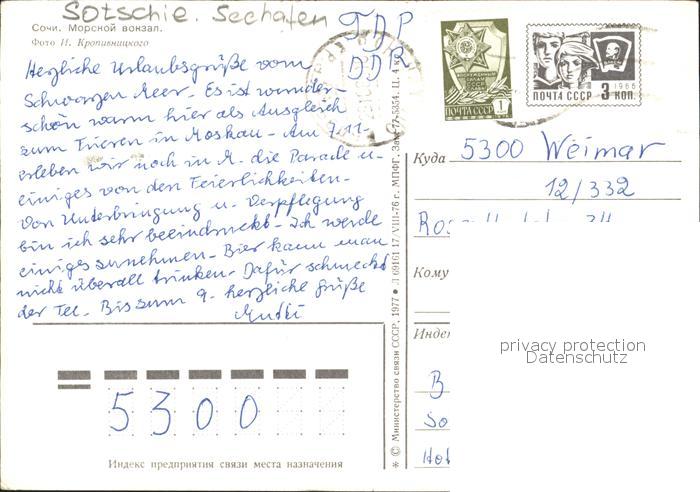 Sotschie. Seehafen
Сочи. Морской вокзал.
Фото И. Кропивницкого
ГДР
DDR
Herzliche Urlaubsgrüße vom
Schwarzen Meer. Es ist wunder-
schön warm hier als Ausgleich
zum Frieren in Moskau. Am 7.11.
erleben wir noch in M. die Parade u.
einiges von den Feierlichkeiten.
Von Unterbringung u. Verpflegung
bin ich sehr beeindruckt. Ich werde
einiges zunehmen. Bier kann man
nicht überall trinken. Dafür schmeckt
der Tee. Bis zum 9. herzliche Grüße
Mutti
ПОЧТА СССР 1
1966
ПОЧТА СССР 3 КОП.
Куда 5300 Weimar
12/332
Кому
Индек
privacy protection
Datenschutz
B
So
Hot
5300
Индекс предприятия связи места назначения
* © Министерство связи СССР, 1977 • Л 69161 17/VIII-76 г. МПФГ. Зак. 77-5354. Ц. 4 к.